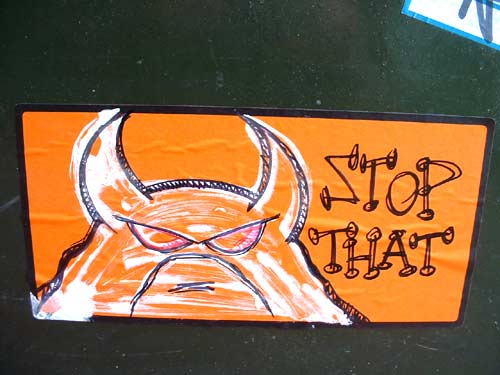 STOP
THAT
N